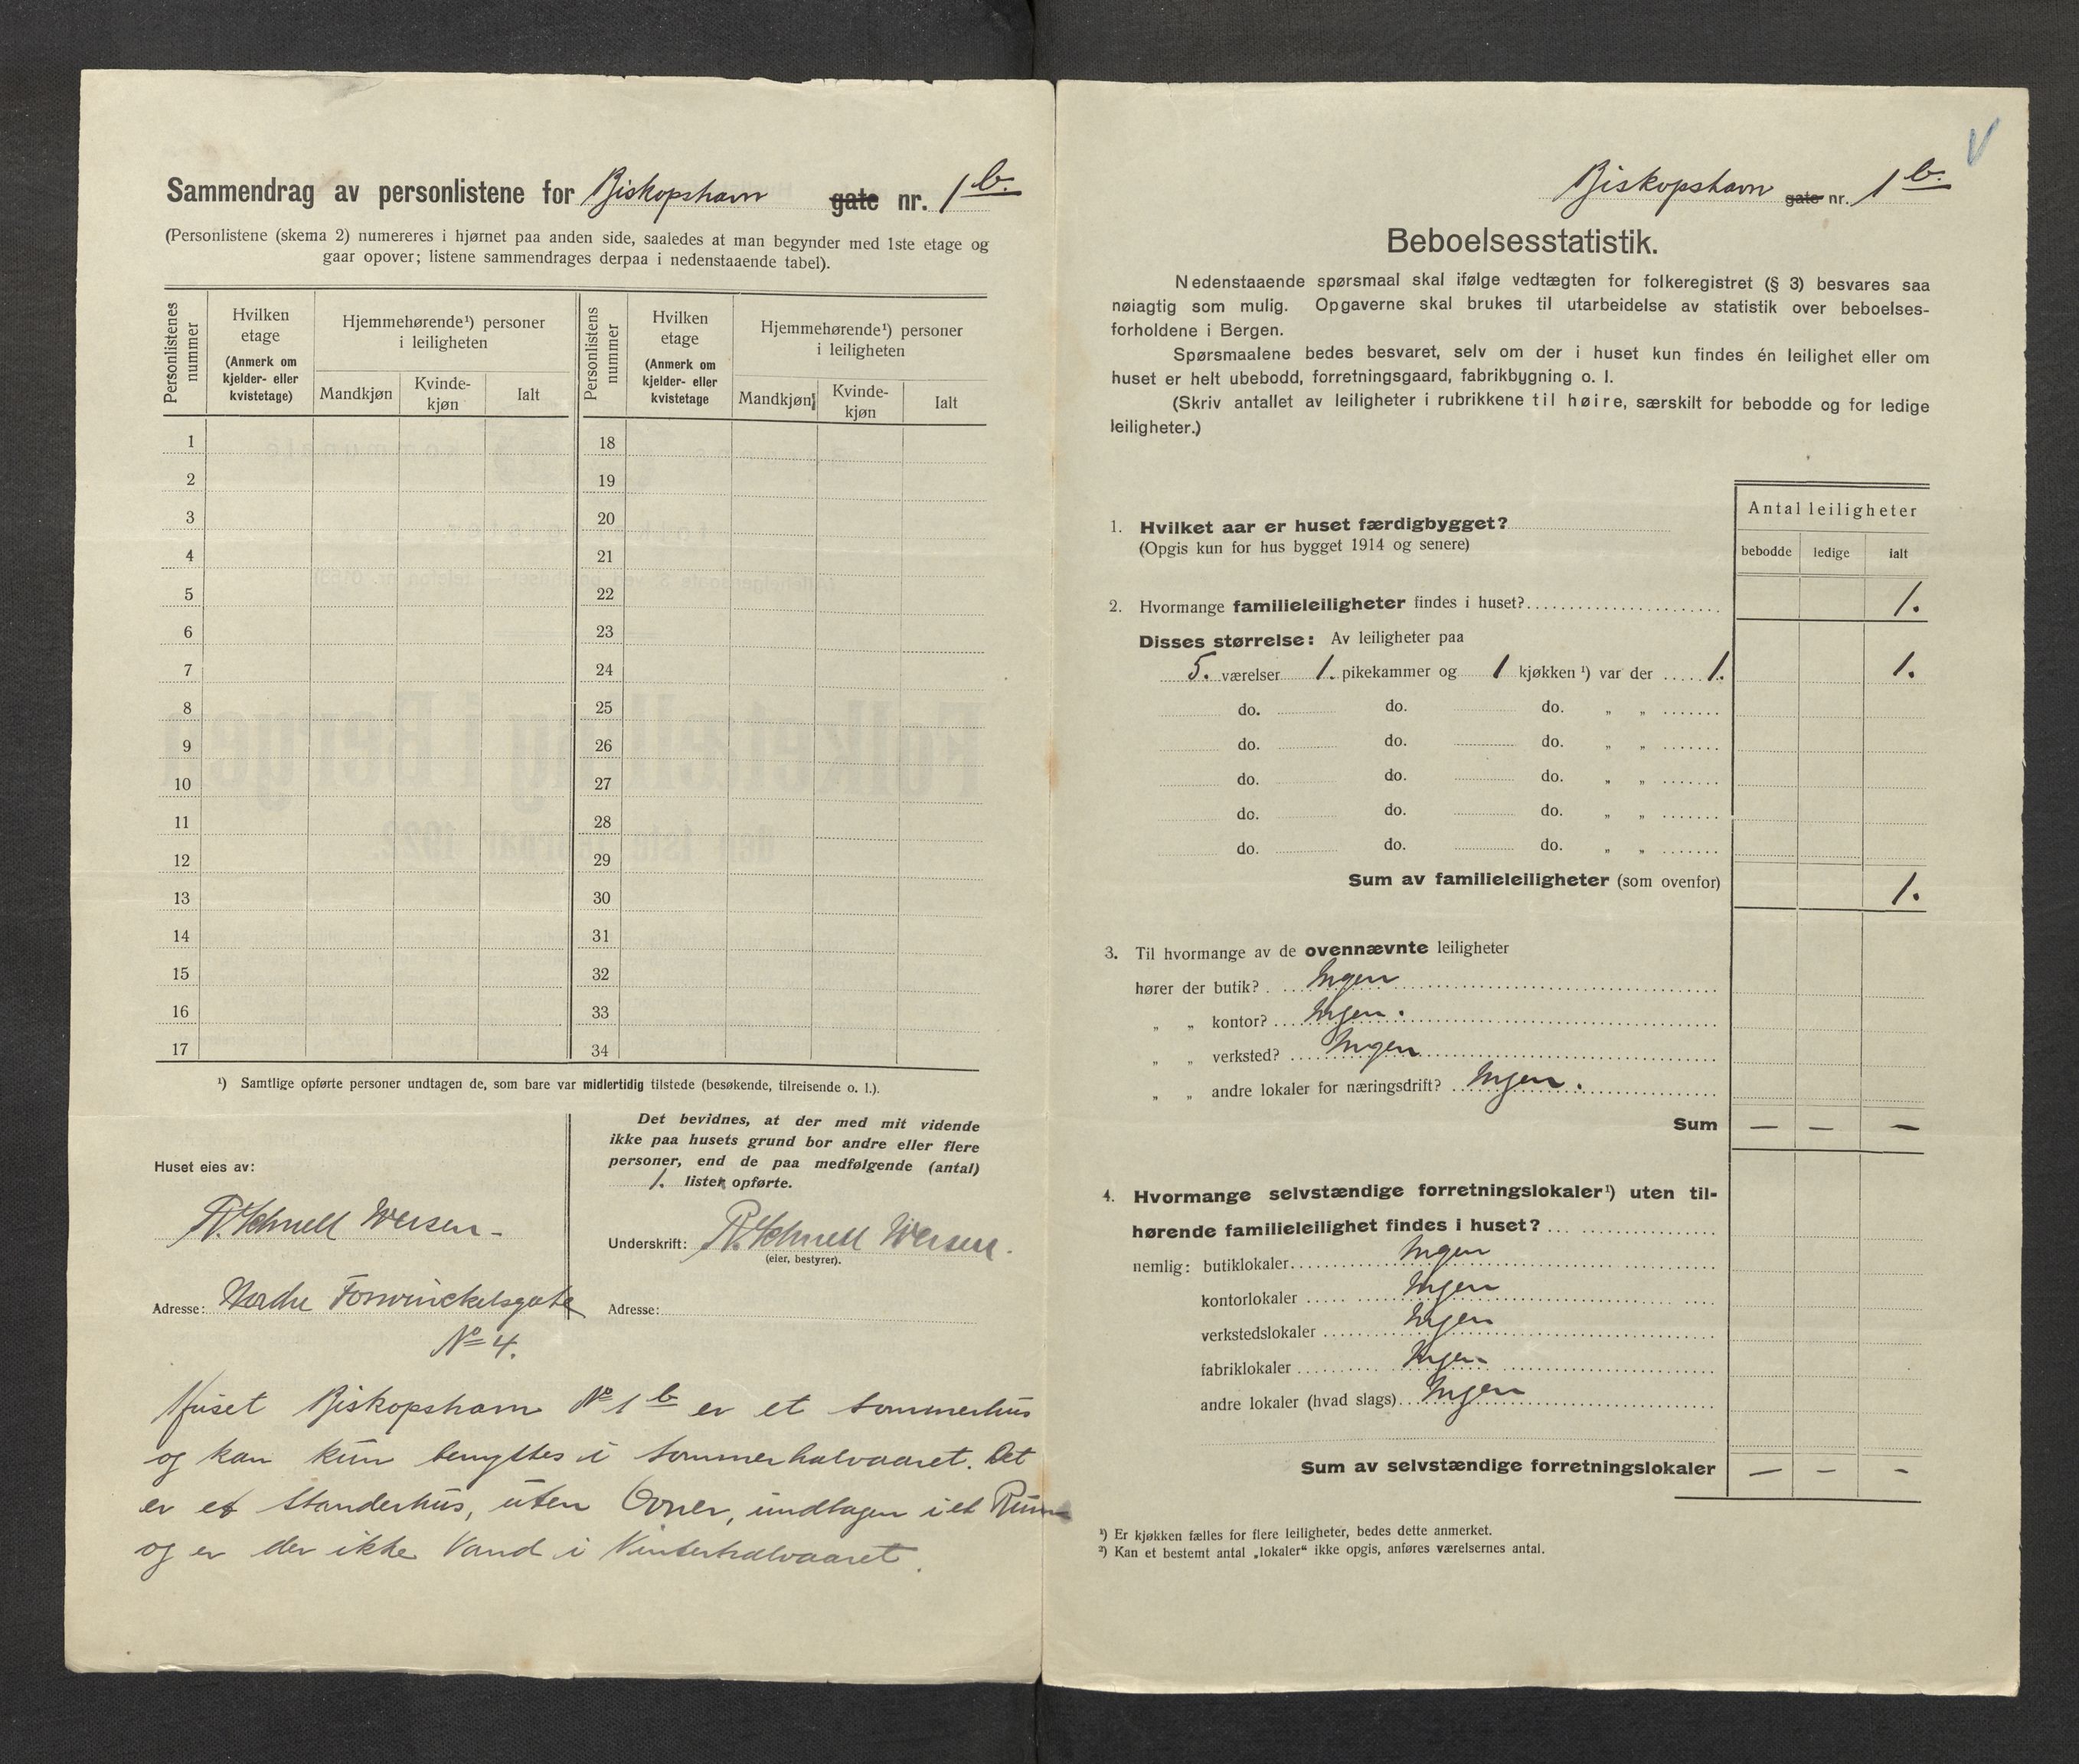 Sammendrag av personlistene for Biskopshavn gate nr. 1 b.
(Personlistene (skema 2) numereres i hjørnet paa anden side, saaledes at man begynder med 1ste etage og
gaar opover; listene sammendrages derpaa i nedenstaaende tabel).
Personlistenes nummer
Hvilken etage
(Anmerk om kjelder- eller kvistetage)
Hjemmehørende¹) personer i leiligheten
Mandkjøn
Kvinde-kjøn
Ialt
Personlistens nummer
Hvilken etage
(Anmerk om kjelder- eller kvistetage
Hjemmehørende¹) personer i leiligheten
Mandkjøn
Kvinde-kjøn
Ialt
1 18
2 19
3 20
4 21
5 22
6 23
7 24
8 25
9 26
10 27
11 28
12 29
13 30
14 31
15 32
16 33
17 34
¹) Samtlige opførte personer undtagen de, som bare var midlertidig tilstede (besøkende, tilreisende o. l.).
Huset eies av:
R. Schnell Wersen
Adresse: Nordre Forswinckelsgate
No 4.
Det bevidnes, at der med mit vidende
ikke paa husets grund bor andre eller flere
personer, end de paa medfølgende (antal)
1. lister opførte.
Underskrift: R. Schnell Wersen.
(eier, bestyrer).
Adresse:
Huset Biskopshavn No 1 b er et Sommerhus
og kan kun benyttes i Sommerhalvaaret. Det
er et Standerhus, uten Ovner, undtagen i et Rum
og er der ikke Vand i Vinterhalvaaret.
Biskopshavn gate nr. 1 b.
Beboelsesstatistik.
Nedenstaaende spørsmaal skal ifølge vedtægten for folkeregistret (§ 3) besvares saa
nøiagtig som mulig. Opgaverne skal brukes til utarbeidelse av statistik over beboelses-
forholdene i Bergen.
Spørsmaalene bedes besvaret, selv om der i huset kun findes én leilighet eller om
huset er helt ubebodd, forretningsgaard, fabrikbygning o. l.
(Skriv antallet av leiligheter i rubrikkene til høire, særskilt for bebodde og for ledige
leiligheter.)
Antal leiligheter
bebodde ledige ialt
1. Hvilket aar er huset færdigbygget?
(Opgis kun for hus bygget 1914 og senere)
2. Hvormange familieleiligheter findes i huset? 1.
Disses størrelse: Av leiligheter paa
5. værelser 1. pikekammer og 1 kjøkken ¹) var der 1. 1.
do. do. do. „ „
do. do. do. „ „
do. do. do. „ „
do. do. do. „ „
do. do. do. „ „
Sum av familieleiligheter (som ovenfor) 1.
3. Til hvormange av de ovennævnte leiligheter
hører der butik? Ingen
„ „ kontor? Ingen.
„ „ verksted? Ingen
„ „ andre lokaler for næringsdrift? Ingen.
Sum — — —
4. Hvormange selvstændige forretningslokaler¹) uten til-
hørende familieleilighet findes i huset?
nemlig: butiklokaler Ingen
kontorlokaler Ingen
verkstedslokaler Ingen
fabriklokaler Ingen
andre lokaler (hvad slags) Ingen
Sum av selvstændige forretningslokaler — - -
¹) Er kjøkken fælles for flere leiligheter, bedes dette anmerket.
²) Kan et bestemt antal „lokaler“ ikke opgis, anføres værelsernes antal.